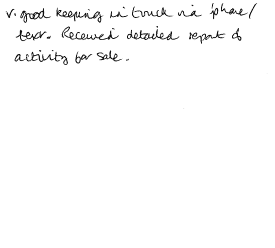 v. good keeping in touch via 'phone/
text. Received detailed report of
activity for sale.